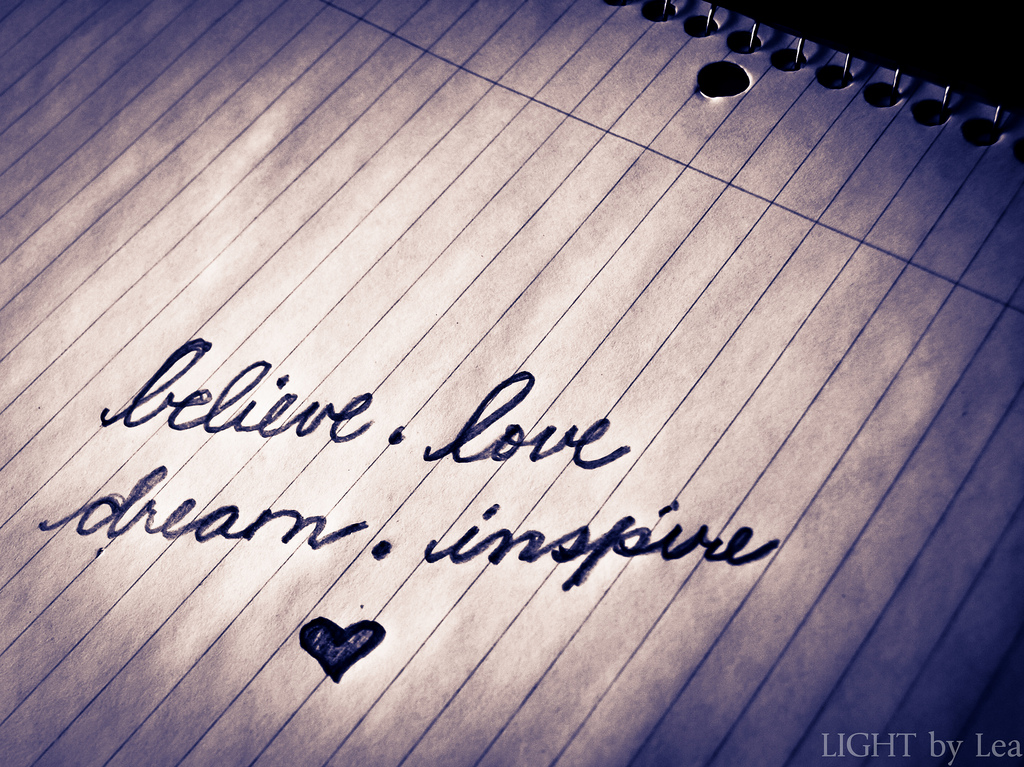 believe. love
dream. inspire
LIGHT by Lea